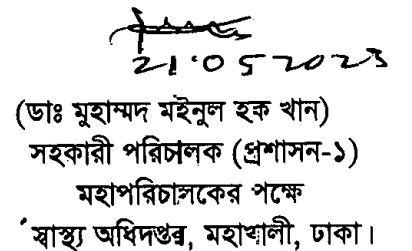 21.05.2023
(ডাঃ মুহাম্মদ মইনুল হক খান)
সহকারী পরিচালক (প্রশাসন-১)
মহাপরিচালকের পক্ষে
স্বাস্থ্য অধিদপ্তর, মহাখালী, ঢাকা।